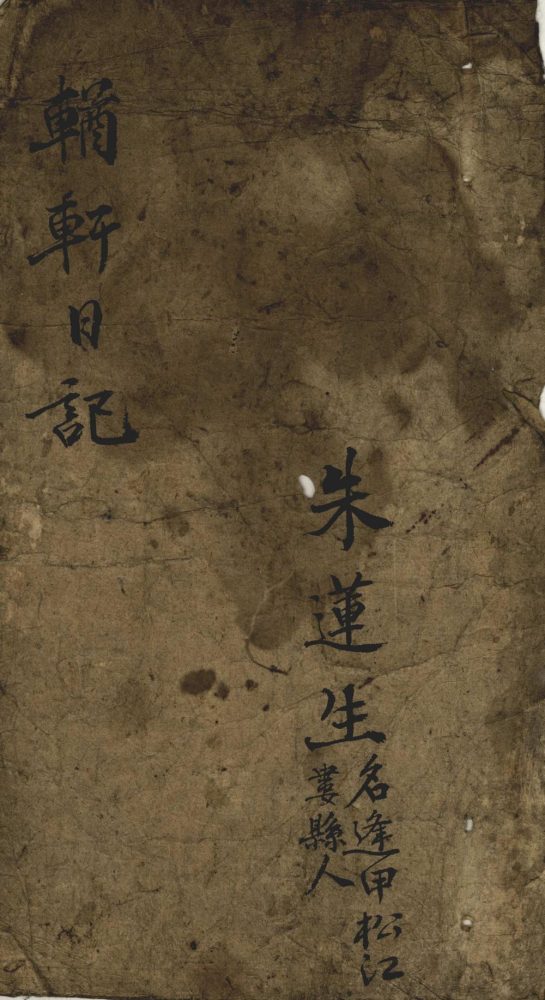 朱蓮生
名逢甲松江
婁縣人
輶軒日記